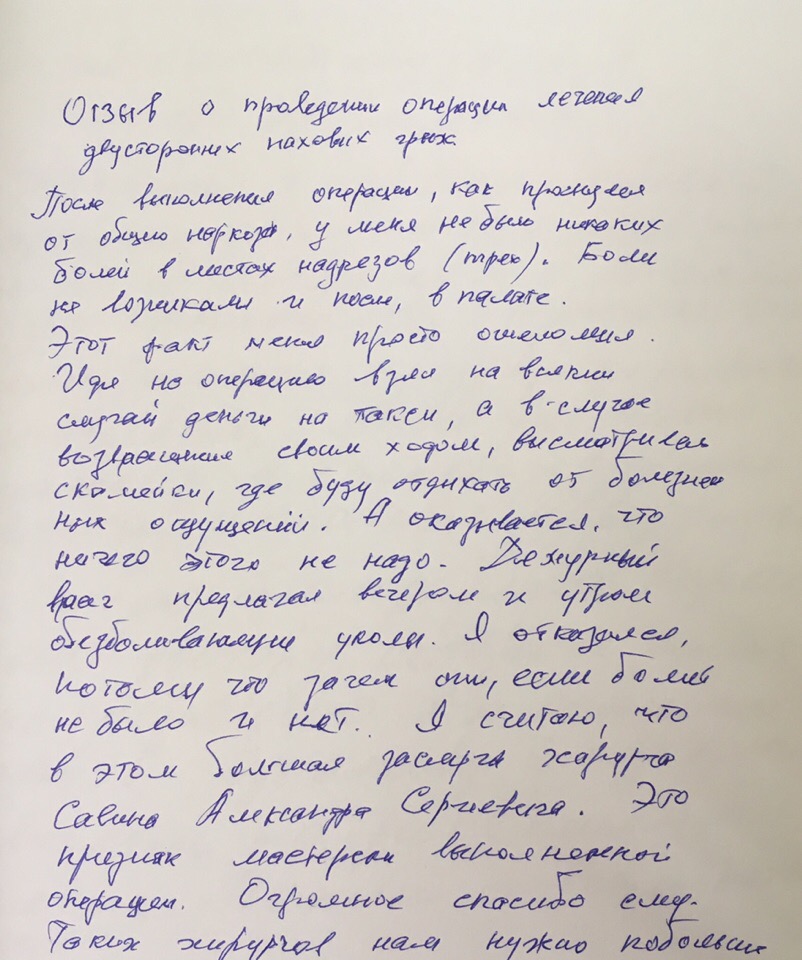 Отзыв о проведении операции лечения
двусторонних паховых грыж.
После выполнения операции, как проснулся
от общего наркоза, у меня не было никаких
болей в местах надрезов (трех). Боли
не возникали и после, в палате.
Этот факт меня просто ошеломил.
Идя на операцию взял на всякий
случай деньги на такси, а в случае
возвращения своим ходом, высматривал
скамейки, где буду отдыхать от болезнен
ных ощущений. А оказывается, что
ничего этого не надо. Дежурный
врач предлагал вечером и утром
обезболивающие уколы. Я отказался,
потому что зачем они, если болей
не было и нет. Я считаю, что
в этом большая заслуга хирурга
Савина Александра Сергеевича. Это
признак мастерски выполненной
операции. Огромное спасибо ему.
Таких хирургов нам нужно побольше